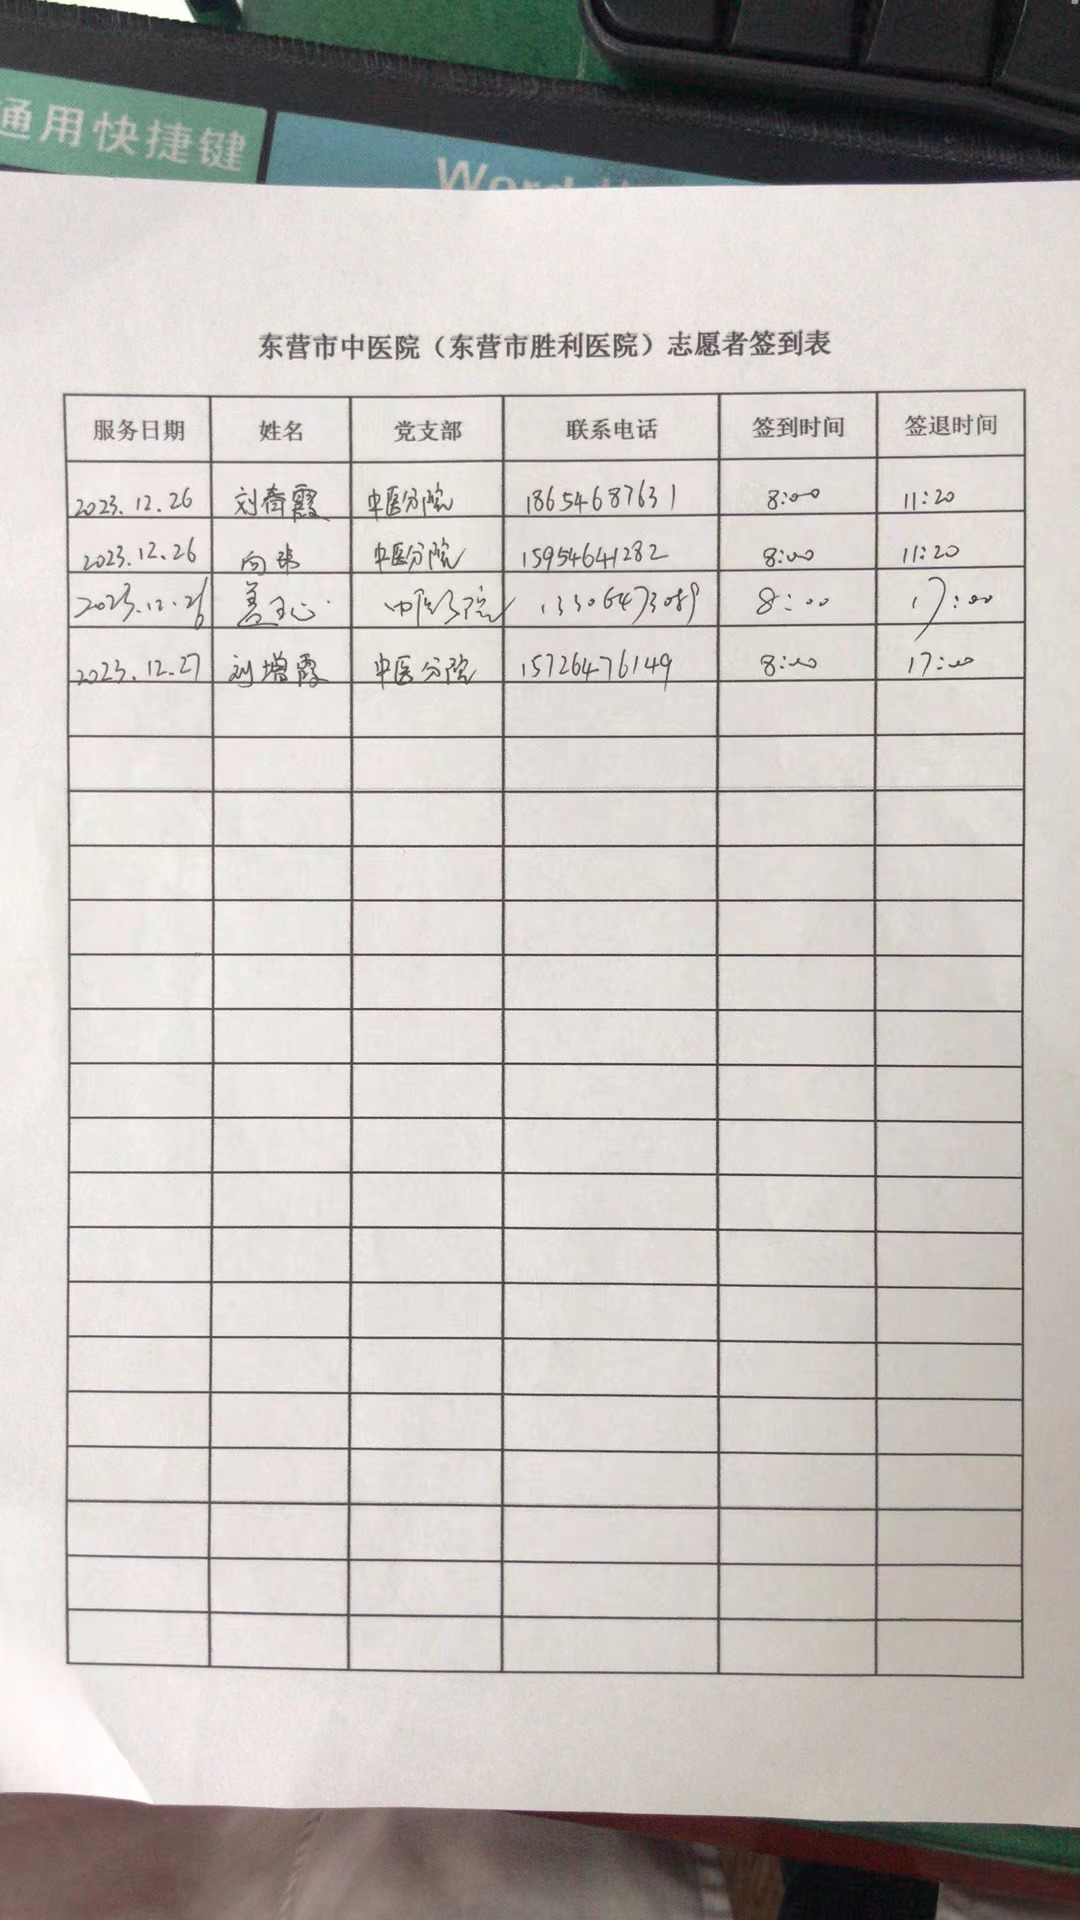 通用快捷键
Word
东营市中医院（东营市胜利医院）志愿者签到表
服务日期 姓名 党支部 联系电话 签到时间 签退时间
2023.12.26 刘春霞 中医分院 18654687631 8:00 11:20
2023.12.26 向 中医分院 15954641282 8:00 11:20
2023.12.26 盖 中医分院 13306473089 8:00 17:00
2023.12.27 刘增霞 中医分院 15726476149 8:00 17:00